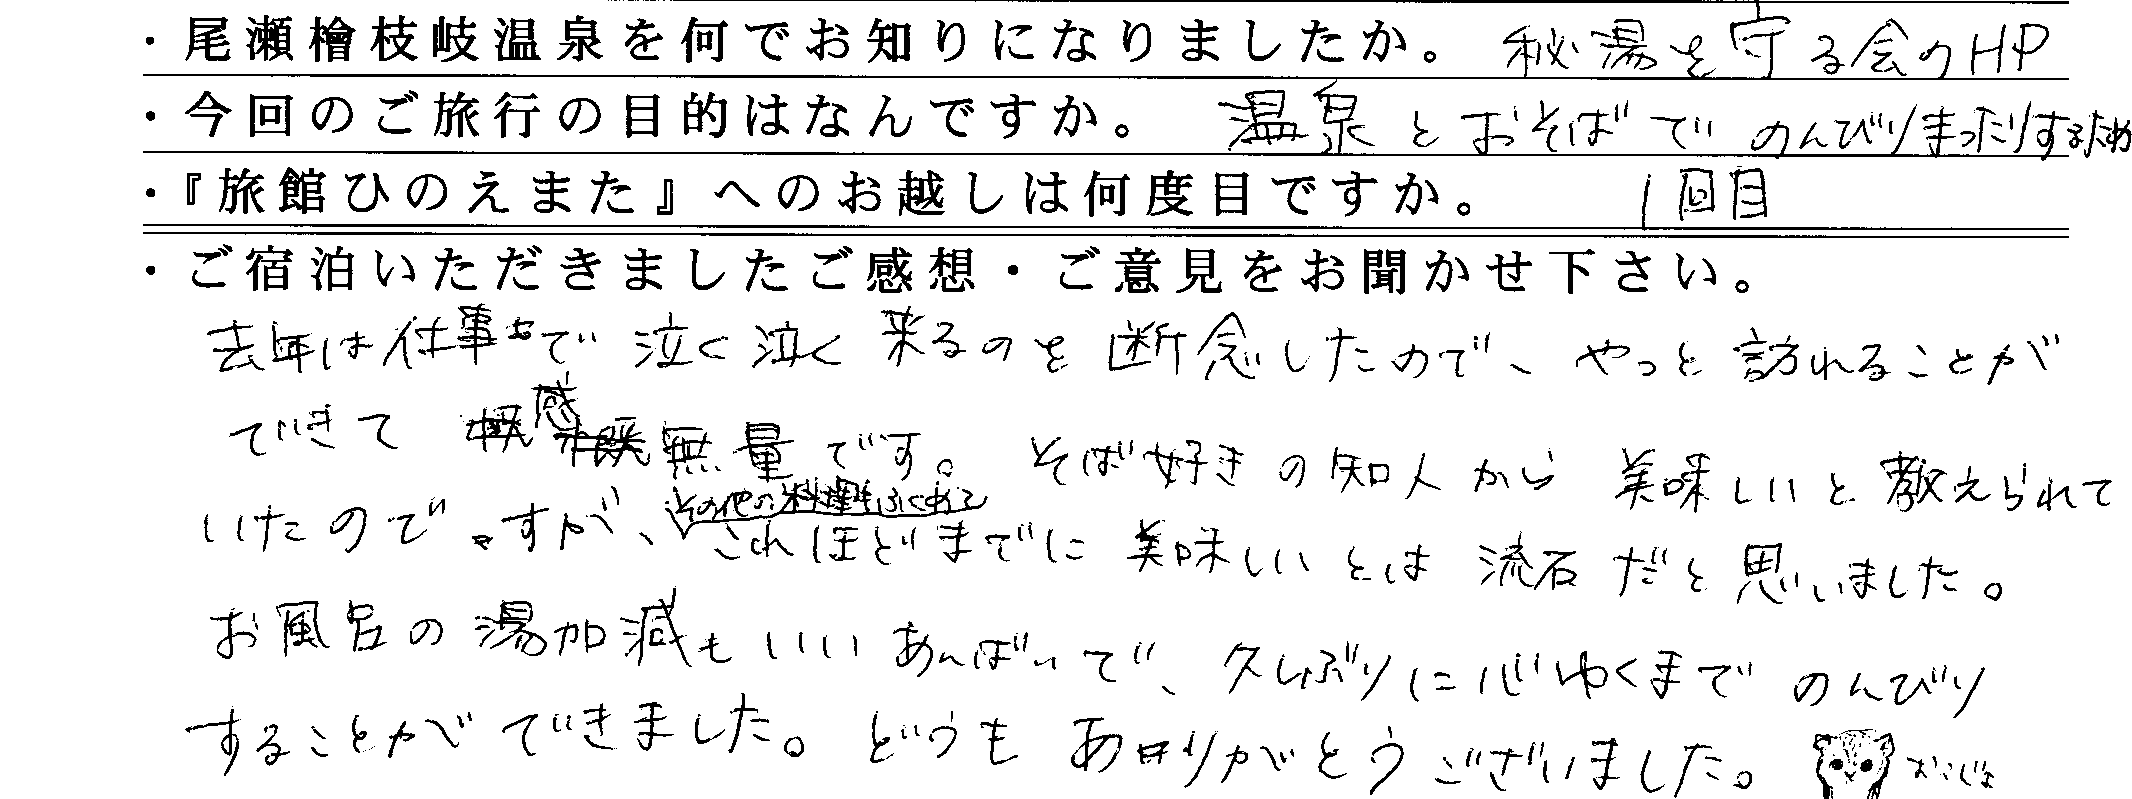 ・尾瀬檜枝岐温泉を何でお知りになりましたか。 秘湯を守る会のHP
・今回のご旅行の目的はなんですか。 温泉とおそばでのんびりまったりするため
・『旅館ひのえまた』へのお越しは何度目ですか。 1回目
・ご宿泊いただきましたご感想・ご意見をお聞かせ下さい。
去年は仕事で泣く泣く来るのを断念したので、やっと訪れることが
できて感無量です。そば好きの知人から美味しいと教えられて
いたのですが、その他の料理もふくめてこれほどまでに美味しいとは流石だと思いました。
お風呂の湯加減もいいあんばいで、久しぶりに心ゆくまでのんびり
することができました。どうもありがとうございました。 おこじょ